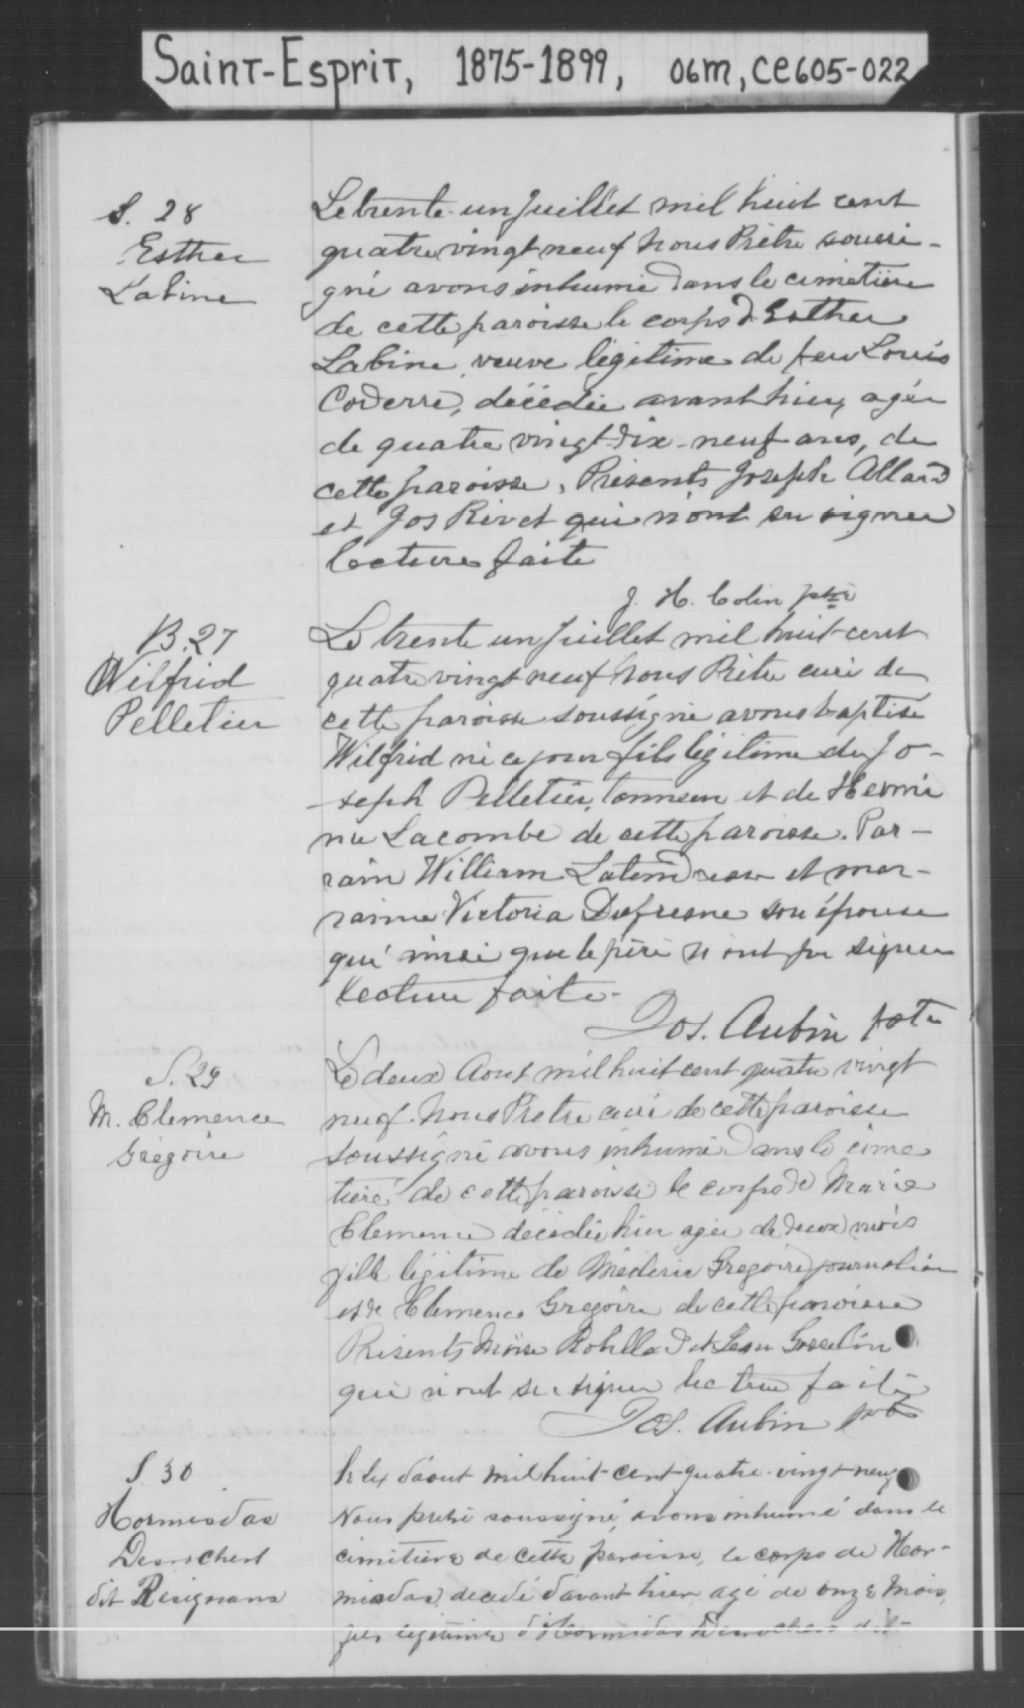 Saint-Esprit, 1875-1899, 06m, ce605-022
S. 28
Esther
Labine
Le trente-un Juillet mil huit cent
quatre vingt neuf Nous Prêtre soussi-
gné avons inhumé dans le cimetière
de cette paroisse le corps d'Esther
Labine, veuve légitime de feu Louis
Coderre, décédée avant hier, agée
de quatre vingt-dix-neuf ans, de
cette paroisse, Présents Joseph Allard
et Jos Rivet qui n'ont su signer
lecture faite
J. H. Colin ptre
B. 27
Wilfrid
Pelletier
Le trente un Juillet mil huit-cent
quatre vingt neuf Nous Prêtre curé de
cette paroisse soussigné avons baptisé
Wilfrid né ce jour fils légitime de Jo-
-seph Pelletier, tanneur et de Hermi
nie Lacombe de cette paroisse. Par-
rain William Latendresse et mar-
raine Victoria Dufresne son épouse
qui ainsi que le père n'ont pu signer
Lecture faite.
Jos. Aubin ptre
S. 29
M. Clemence
Grégoire
Le deux Aout mil huit cent quatre vingt
neuf. Nous Prêtre curé de cette paroisse
soussigné avons inhumé dans le cime
tière de cette paroisse le corps de Marie
Clemence décédée hier agée de deux mois
fille légitime de Médéric Gregoire journalier
et de Clemence Gregoire de cette paroisse
Présents Moïse Robillard et Léon Gosselin
qui n'ont su signer lecture faite
Jos. Aubin ptre
S 30
Hormisdas
Desrochers
dit
Le six d'aout mil huit-cent-quatre-vingt-neuf
Nous prêtre soussigné, avons inhumé dans le
cimitière de cette paroisse, le corps de Hor-
misdas, décédé d'avant hier, agé de onze mois,
fils légitime d'Hormisdas Desrochers dit-